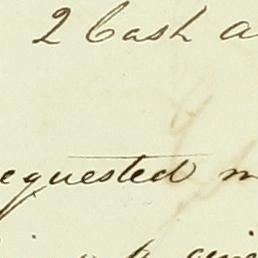 2 Cash a
equested m